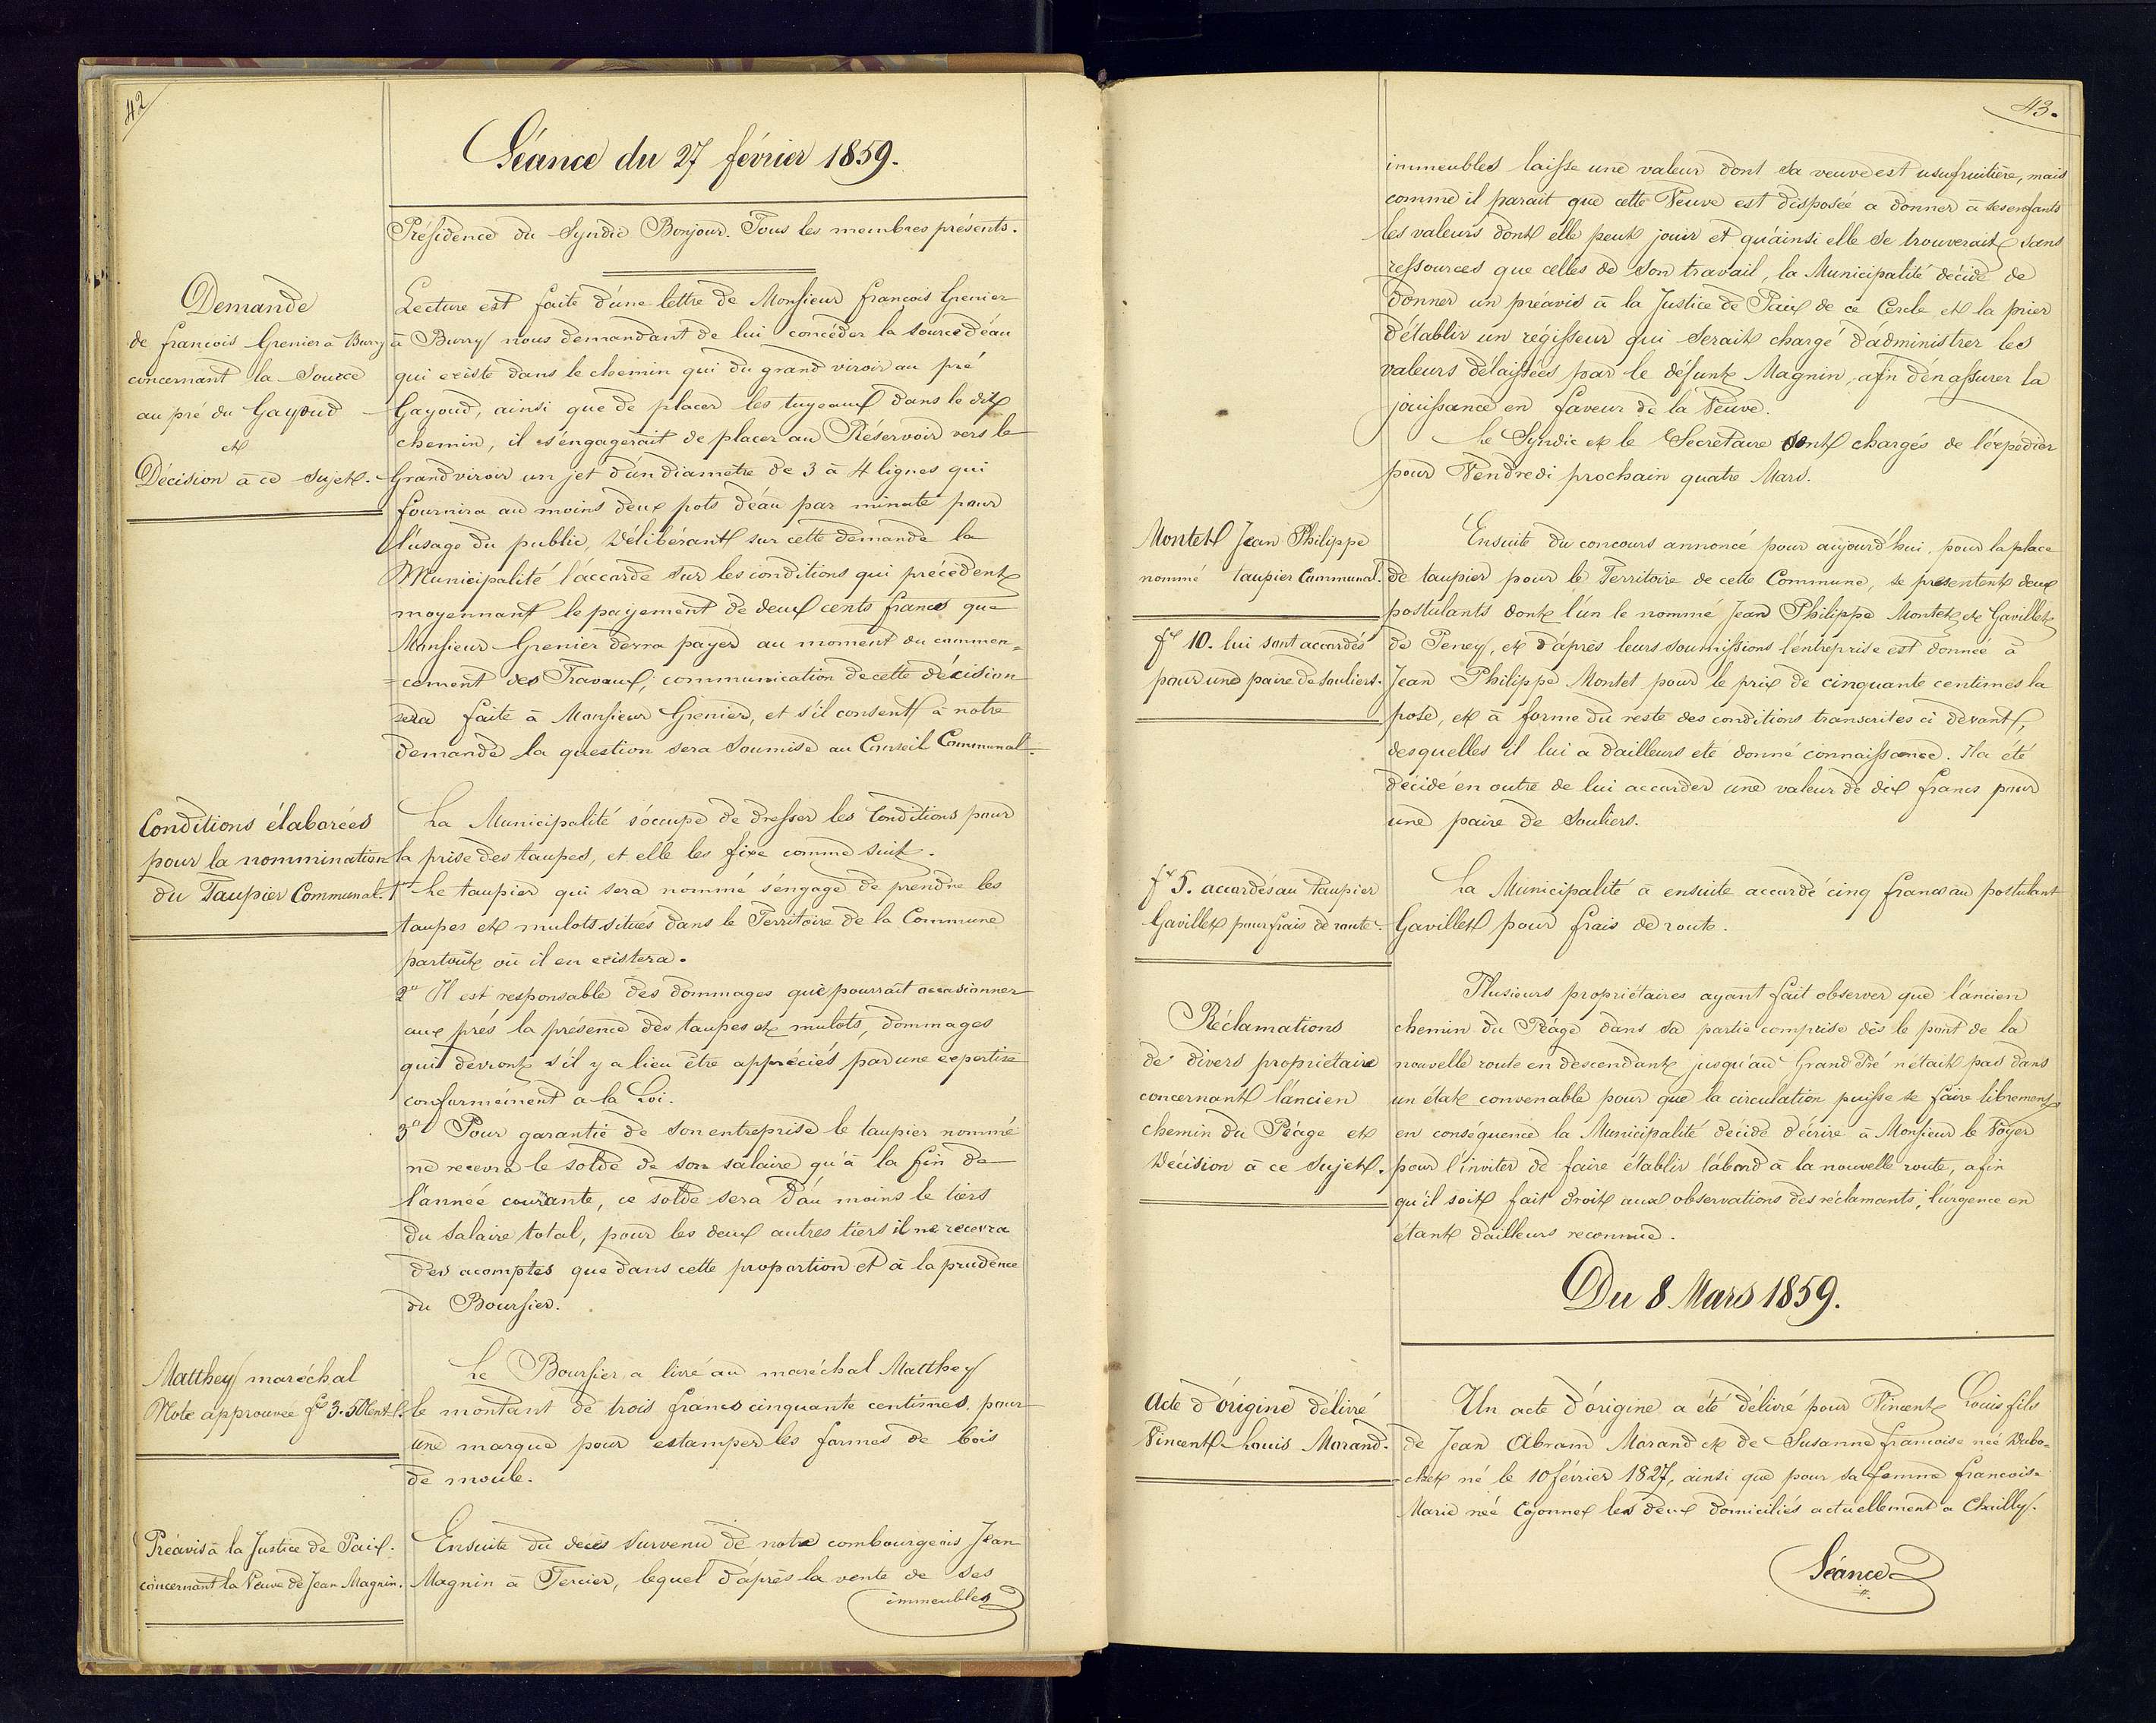 42
Séance du 27 février 1859.
Présidence du Syndic Bonjour. Tous les membres présents.
Demande
de françois Grenier à Burry
concernant la Source
au pré du Gayoud
et
Décision à ce Sujet.
Lecture est faite d'une lettre de Monsieur françois Grenier
à Burry nous demandant de lui concéder la source d'eau
qui existe dans le chemin qui du grand viroir au pré
Gayoud, ainsi que de placer les tuyeaux dans le dit
chemin, il s'engagerait de placer au Réservoir vers le
Grand viroir un jet d'un diamètre de 3 à 4 lignes qui
fournira au moins deux pots d'eau par minute pour
l'usage du public, Délibérant sur cette demande la
Municipalité l'accorde sur les conditions qui précèdent
moyennant le payement de deux cents francs que
Monsieur Grenier devra payer au moment du commen=
=cement des Travaux; communication de cette décision
sera faite à Monsieur Grenier, et s'il consent à notre
demande la question sera Soumise au Conseil Communal.
Conditions élaborées
pour la nommination
du Taupier Communal.
La Municipalité s'occupe de dresser les Conditions pour
la prise des taupes, et elle les fixe comme suit.
1° Le taupier qui sera nommé s'engage de prendre les
taupes et mulots situés dans le Territoire de la Commune
partout où il en existera.
2° Il est responsable des dommages que pourrait occasionner
aux prés la présence des taupes et mulots, dommages
qui devront s'il y a lieu être appréciés par une expertise
conformément a la Loi.
3° Pour garantie de son entreprise le taupier nommé
ne recevra le solde de son salaire qu'à la fin de
l'année courante, ce solde sera d'au moins le tiers
du salaire total, pour les deux autres tiers il ne recevra
des acomptes que dans cette proportion et à la prudence
du Boursier.
Matthey maréchal
Note approuvée fs 3.50 Cent.
Le Boursier a livré au maréchal Matthey
le montant de trois francs cinquante centimes, pour
une marque pour estamper les formes de bois
de moule.
Préavis à la Justice de Paix.
concernant la Veuve de Jean Magnin.
Ensuite du décès survenu de notre combourgeois Jean
Magnin à Tercier, lequel d'après la vente de ses
immeubles
43.
immeubles laisse une valeur dont sa veuve est usufruitière, mais
comme il parait que cette Veuve est disposée a donner à ses enfants
les valeurs dont elle peut jouir et qu'ainsi elle se trouverait sans
ressources que celles de son travail, la Municipalité décide de
donner un préavis à la Justice de Paix de ce Cercle et la prier
d'établir un régisseur qui serait chargé d'administrer les
valeurs délaissées par le défunt Magnin, afin d'en assurer la
jouissance en faveur de la Veuve.
Le Syndic et le Secretaire sont chargés de l'expédier
pour Vendredi prochain quatre Mars.
Montet Jean Philippe
nommé taupier Communal.
fs 10. lui sont accordés
pour une paire de souliers.
Ensuite du concours annoncé pour aujourd'hui, pour la place
de taupier pour le Territoire de cette Commune, se présentent deux
postulants dont l'un le nommé Jean Philippe Montet et Gavillet
de Peney, et d'après leurs soumissions l'entreprise est donnée à
Jean Philippe Montet pour le prix de cinquante centimes la
pose, et à forme du reste des conditions transcrites ci devant,
desquelles il lui a d'ailleurs été donné connaissance. Il a été
décidé en outre de lui accorder une valeur de dix francs pour
une paire de Souliers.
fs 5. accordés au taupier
Gavillet pour frais de route.
La Municipalité a ensuite accordé cinq francs au postulant
Gavillet pour frais de route.
Réclamations
de divers propriétaire
concernant l'ancien
chemin du Péage et
Décision à ce Sujet.
Plusieurs propriétaires ayant fait observer que l'ancien
chemin du Péage dans sa partie comprise dès le pont de la
nouvelle route en descendant jusqu'au Grand Pré n'était pas dans
un état convenable pour que la circulation puisse se faire librement
en conséquence la Municipalité décide d'écrire à Monsieur le Voyer
pour l'inviter de faire établir l'abord à la nouvelle route, afin
qu'il soit fait droit aux observations des réclamants, l'urgence en
étant d'ailleurs reconnue.
Du 8 Mars 1859.
Acte d'origine délivré
Vincent Louis Morand.
Un acte d'origine a été délivré pour Vincent Louis fils
de Jean Abram Morand et de Susanne françoise née Dubo-
-chet né le 10 février 1827, ainsi que pour sa femme françoise
Marie née Cojonnex les deux domiciliés actuellement a Chailly.
Séance